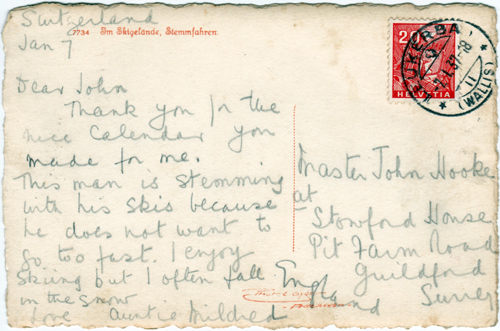 Switzerland
Jan 7
7734 Im Skigelände, Stemmfahren.
Dear John
Thank you for the
nice Calendar you
made for me.
This man is stemming
with his skis because
he does not want to
go too fast. I enjoy
skiing but I often fall
in the snow
Love Auntie Mildred
20
HELVETIA
(WALLIS)
Master John Hooke
at
Stowford House
Pit Farm Road
Guildford
Surrey
England